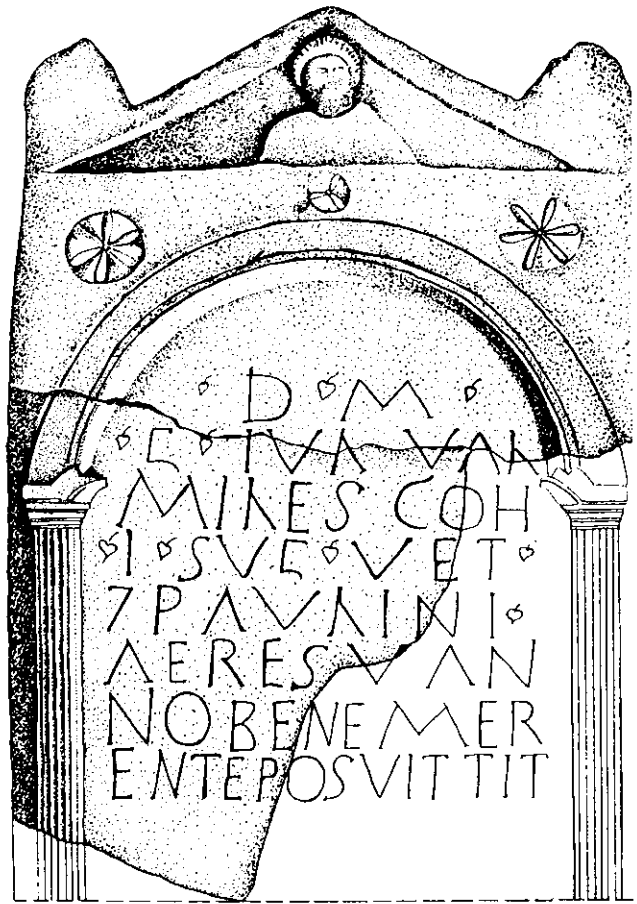 ❦ D ❦ M ❦
❦ G ❦ IVL VAL
MILES COH
❦ I ❦ SVG ❦ VET ❦
7 PAVLINI ❦
AERES VAN
NO BENE MER
ENTE POSVIT TIT